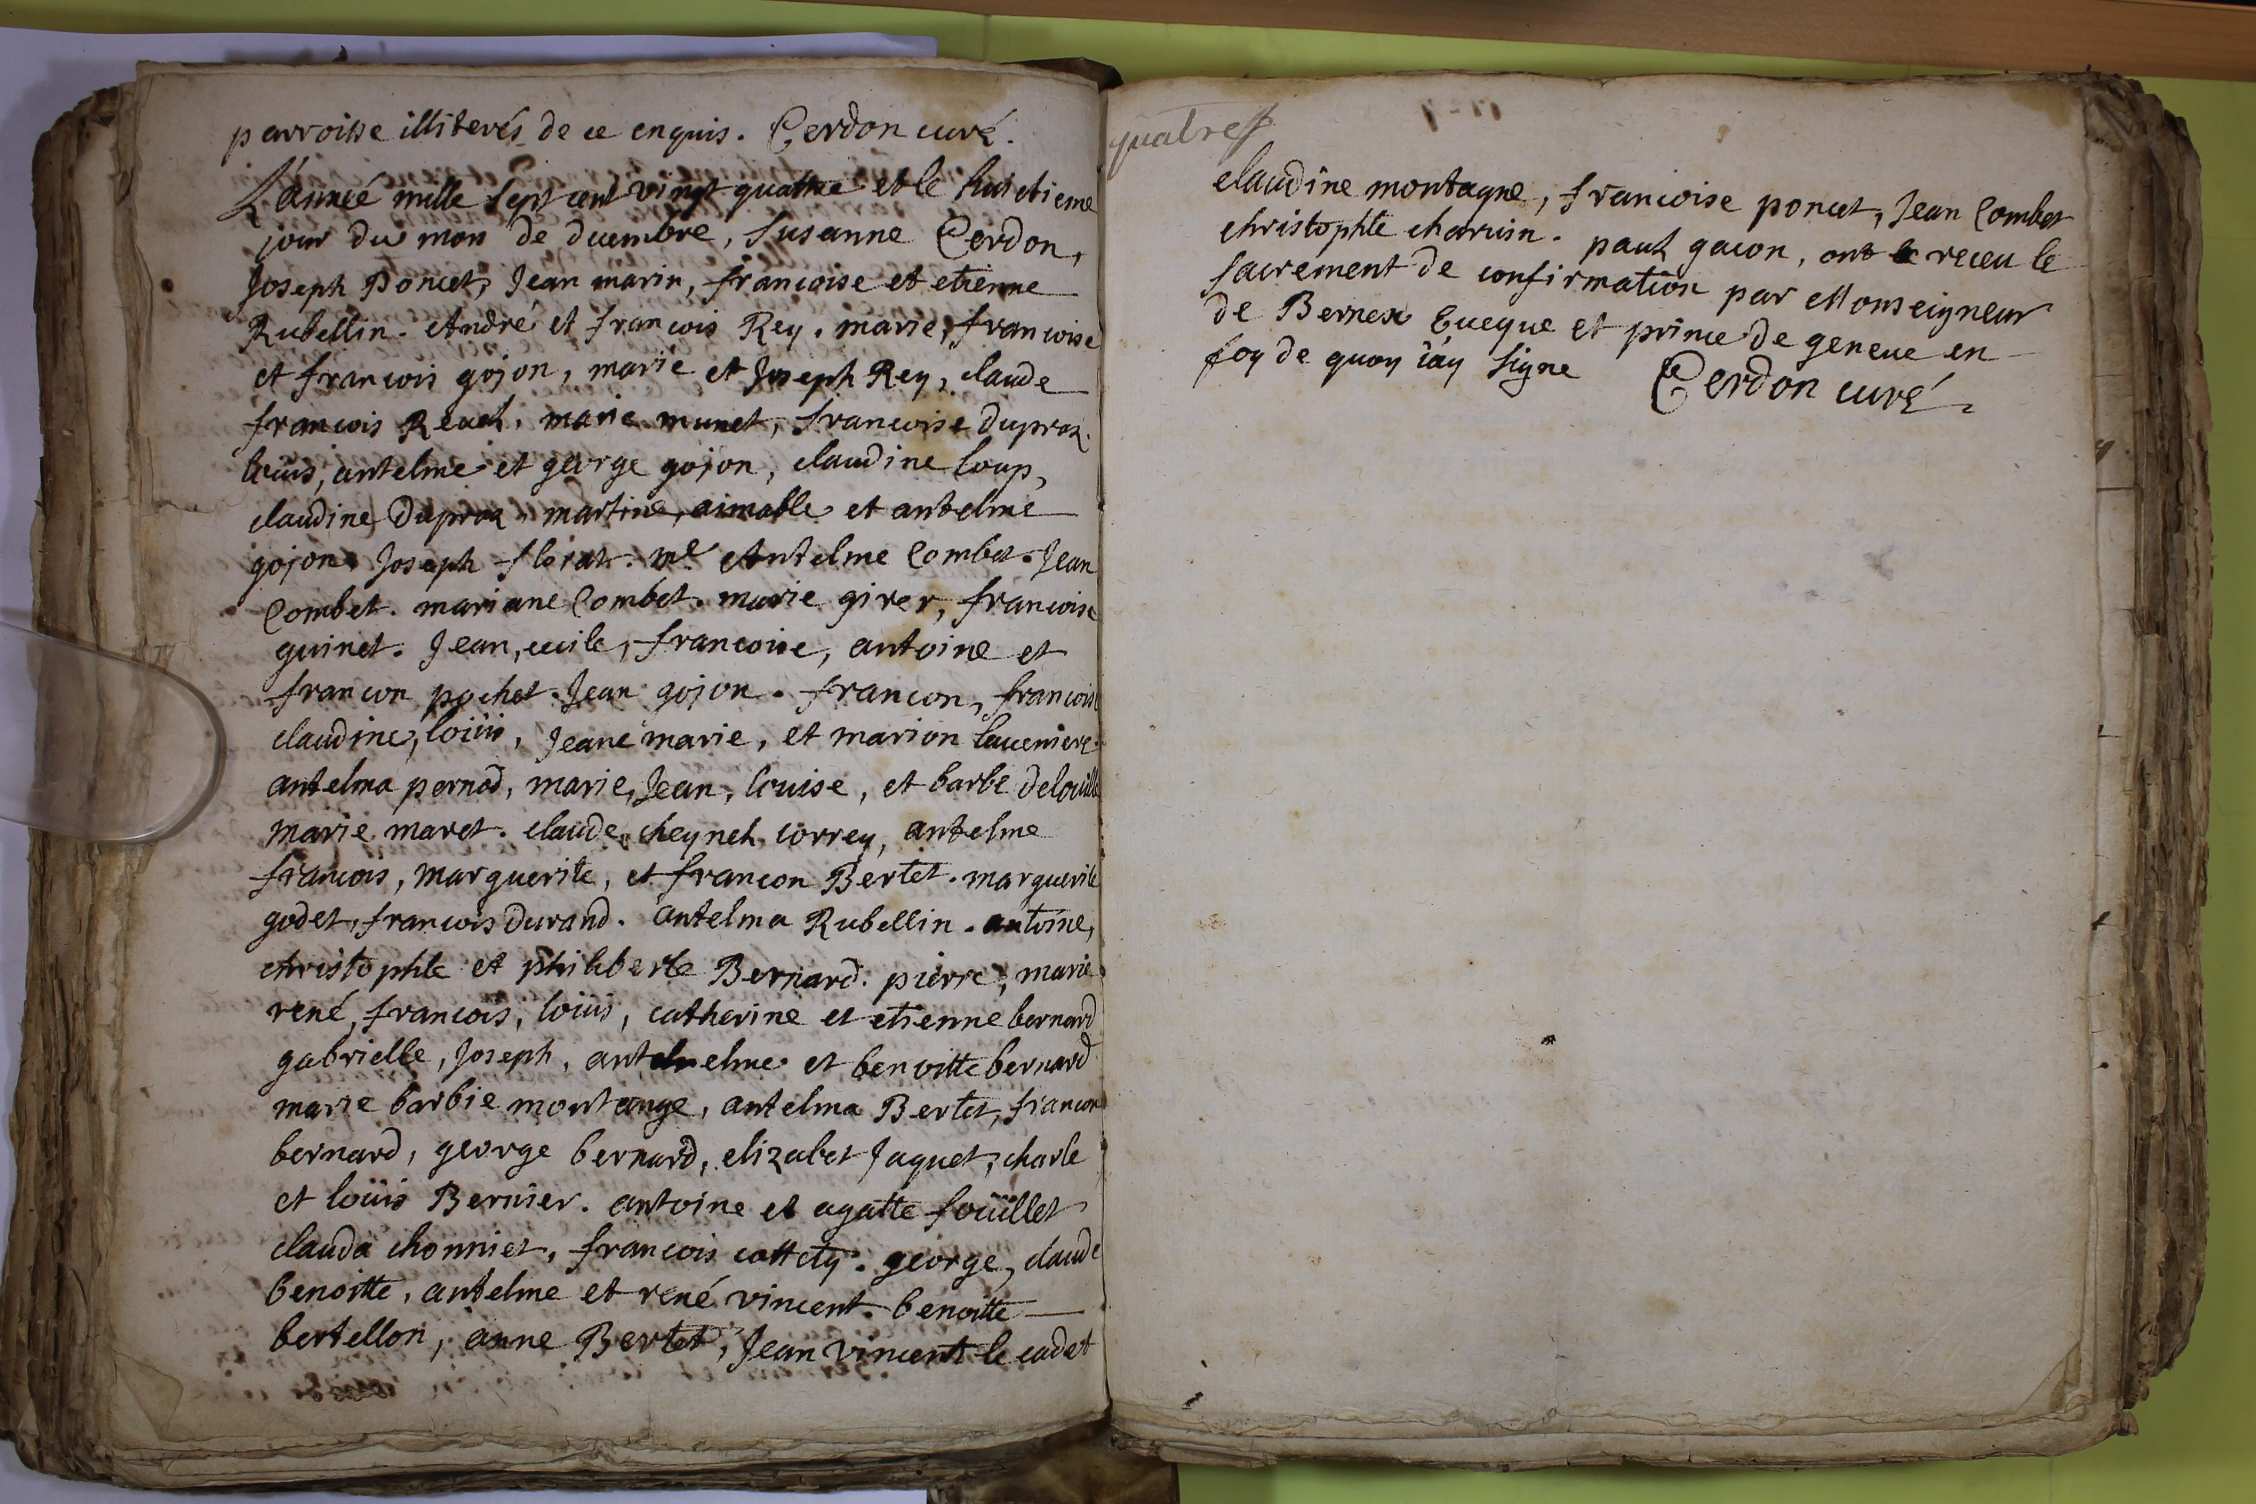 parroisse illiterés de ce enquis. Cerdon curé.
L'année mille sept cent vingt quattre et le huictieme
jour du mon de decembre, Susanne Cerdon,
Joseph Poncet, Jean marin, francoise et etienne
Rubellin. André et francois Rey. marie, francoise
et francois gojon, marie et Joseph Rey, claude
francois Revel, marie munet, francoise dupraz.
loüis, antelme et george gojon, claudine loup,
claudine Dupraz. martine, aimable et antelme
gojon. Joseph florat. me Antelme Combet. Jean
Combet. mariane Combet. marie girer, francoise
guinet. Jean, cecile, francoise, antoine et
francon pochet. Jean gojon. francon, francoise
claudine, loüis, Jeane marie, et marion laueniere.
antelma pernod, marie, Jean, louise, et barbe delouille
marie maret. claude cheynel correy, antelme
francois, marguerite, et francon Bertet. marguerite
godet, francois durand. antelma Rubellin. antoine,
christophle et philiberte Bernard. pierre, marie
rené, francois, loüis, catherine et etienne bernard
gabrielle, Joseph, antelme et benoitte bernard
marie barbie montange, antelma Bertet, francon
bernard, george bernard, elizabet Jaquet, charle
et loüis Bernier. antoine et agatte foüillet
clauda chonniet, francois cottety. george, claude
benoitte, antelme et rené vincent. benoitte
bertellon, anne Bertet, Jean vincent le cadet
quatre
claudine montagne, francoise poncet, Jean Combet
christophle charuin. paul gacon, ont receu le
sacrement de confirmation par Monseigneur
de Bernex Eueque et prince de geneue en
foy de quoy i'ay signe Cerdon curé